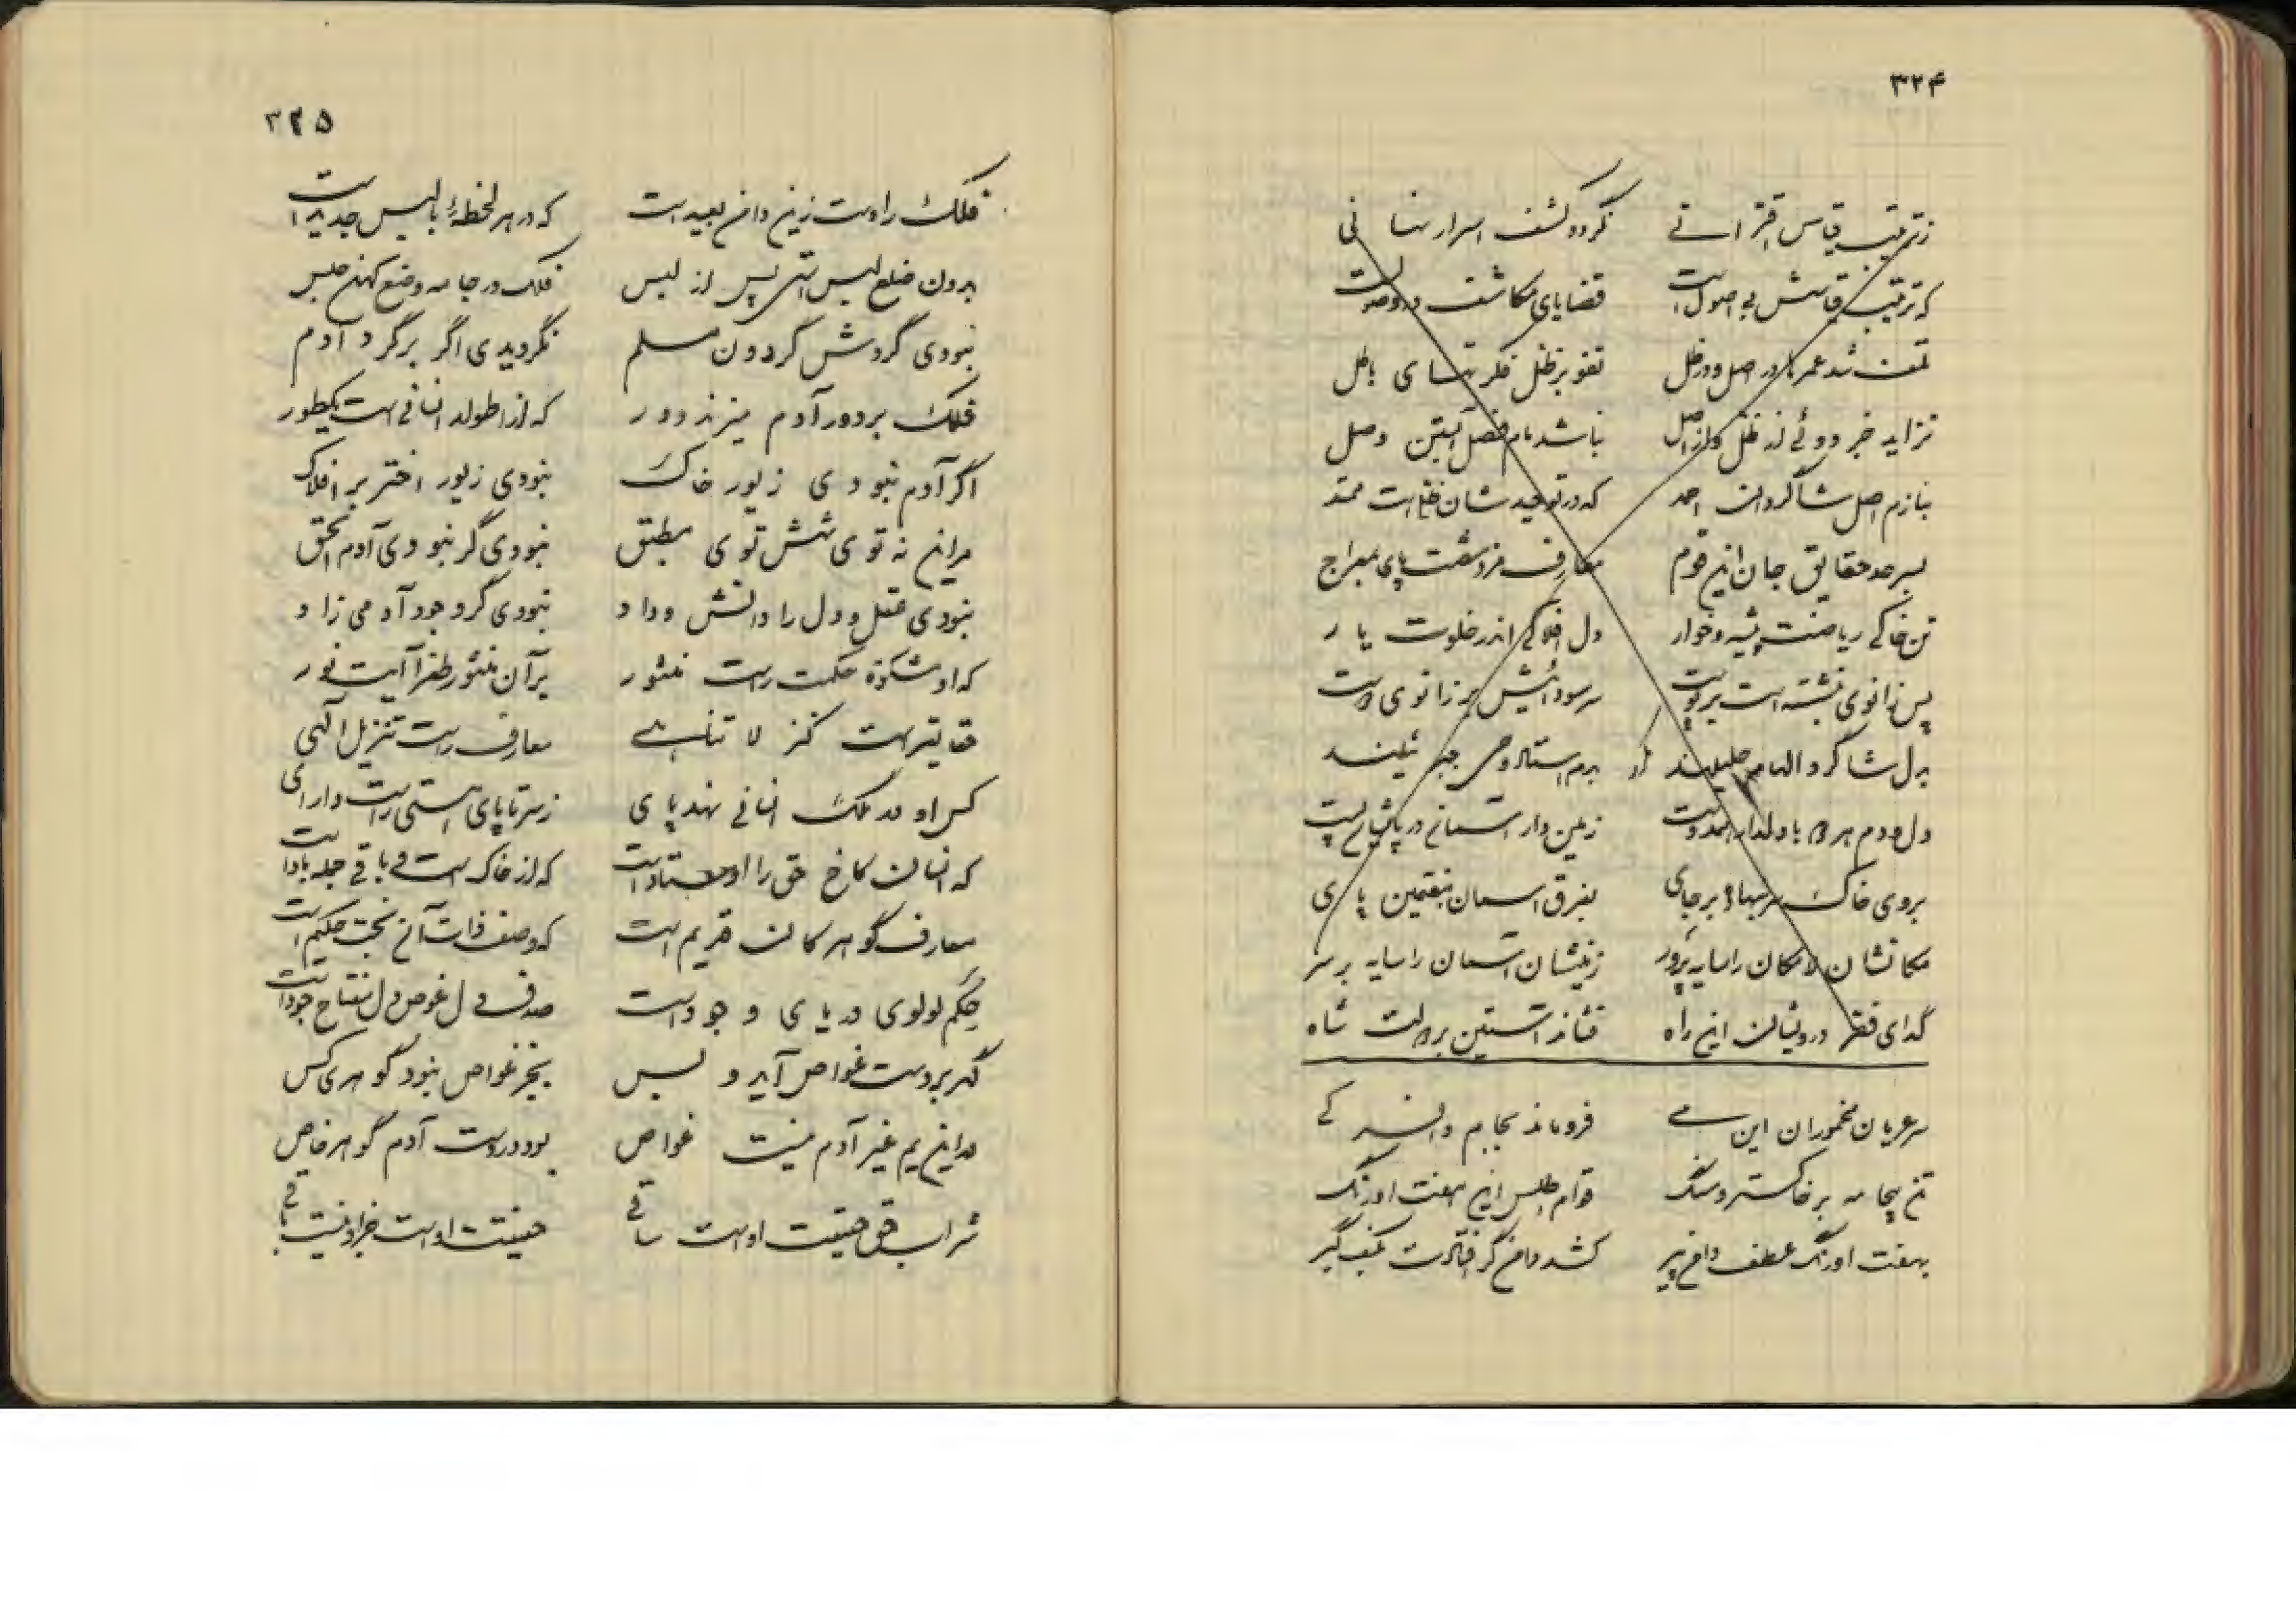 ۳۲۴
ز ترتیب قیاس اقترانی نگردد کشف اسرار نهانی
که ترتیب قیاسش بی اصول است قضایای مکاشف در وصول است
تلف شد عمرها در اصل و در ظل تفو بر ظل فکرتهای باطل
نزاید جز دوئی از ظل و از اصل نباشد نام فصل وصل
بنازم اصل شاگردان احمد که در توحید شان ظل است ممتد
بسر حد حقایق جان این قوم معارف پای معراج
تن خاکی ریاضت پیشه و خوار دل افلاکی اندر خلوت یار
پس زانوی بنشسته است بر پوست سر سودائیش بر زانوی دوست
بدل شاگرد الهام جلیلند بدم استاد وحی جبرئیلند
دل و دم هر دو با دلدار همدست زمین دار آسمانی در پاپست
بروی خاک سر بنهاده بر جای بفرق آسمان هفتمین پای
مکانشان لامکان را سایه پرور زمینشان آسمان را سایه بر سر
گدای فقر درویشان این راه فشاند آستین بر دولت شاه
سر عریان مخموران این می فرو ماند بجام و افسر کی
تن بیجامه بر خاکستر و سنگ قوام اطلس این هفت اورنگ
بهفت اورنگ عطف دامن پیر کشد دامن گر افتادت بکف گیر
۳۲۵
فلک را دست زین دامن بعید است که در هر لحظهٔ با لبس جدید است
بدون خلع لبس استی پس از لبس فلک در جامه وضع کهن حلس
نبودی گردش گردون مسلم نگردیدی اگر بر گرد آدم
فلک بر دور آدم میزند دور که از اطوار انسانی است یکطور
اگر آدم نبودی زیور خاک نبودی زیور اختر بر افلاک
مر این نه توی شش توی مطبق نبودی گر نبودی آدم الحق
نبودی عقل و دل را دانش و داد نبودی گر وجود آدمی زاد
که او مشکوة حکمت راست منشور بر آن منشور طغرا آیت نور
حقایق هست کنز لا تناهی معارف راست تنزیل الهی
کس او در ملک انسانی نهد پای ز سر تا پای هستی راست دارای
که انسان کاخ حق را اوستاد است که از خاک است و باقی جمله باد است
معارف گوهر کان قدیم است که وصف ذات آن بحت حکیم است
حکم لولوی دریای وجود است صدف دل غوص دل مفتاح جود است
گهر بر دست غواص آید و بس بجز غواص نبود گوهری کس
در این یم غیر آدم نیست غواص بود در دست آدم گوهر خاص
شراب حق حقیقت اوست ساقی حقیقت اوست جز او نیست باقی